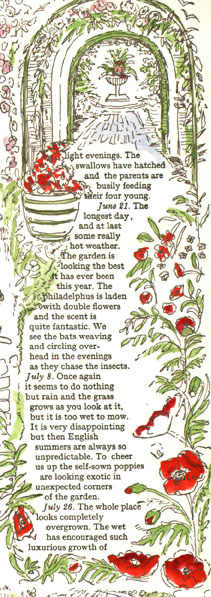 light evenings. The
swallows have hatched
and the parents are
busily feeding
their four young.
June 21. The
longest day,
and at last
some really
hot weather.
The garden is
looking the best
it has ever been
this year. The
philadelphus is laden
with double flowers
and the scent is
quite fantastic. We
see the bats weaving
and circling over-
head in the evenings
as they chase the insects.
July 8. Once again
it seems to do nothing
but rain and the grass
grows as you look at it,
but it is too wet to mow.
It is very disappointing
but then English
summers are always so
unpredictable. To cheer
us up the self-sown poppies
are looking exotic in
unexpected corners
of the garden.
July 26. The whole place
looks completely
overgrown. The wet
has encouraged such
luxurious growth of